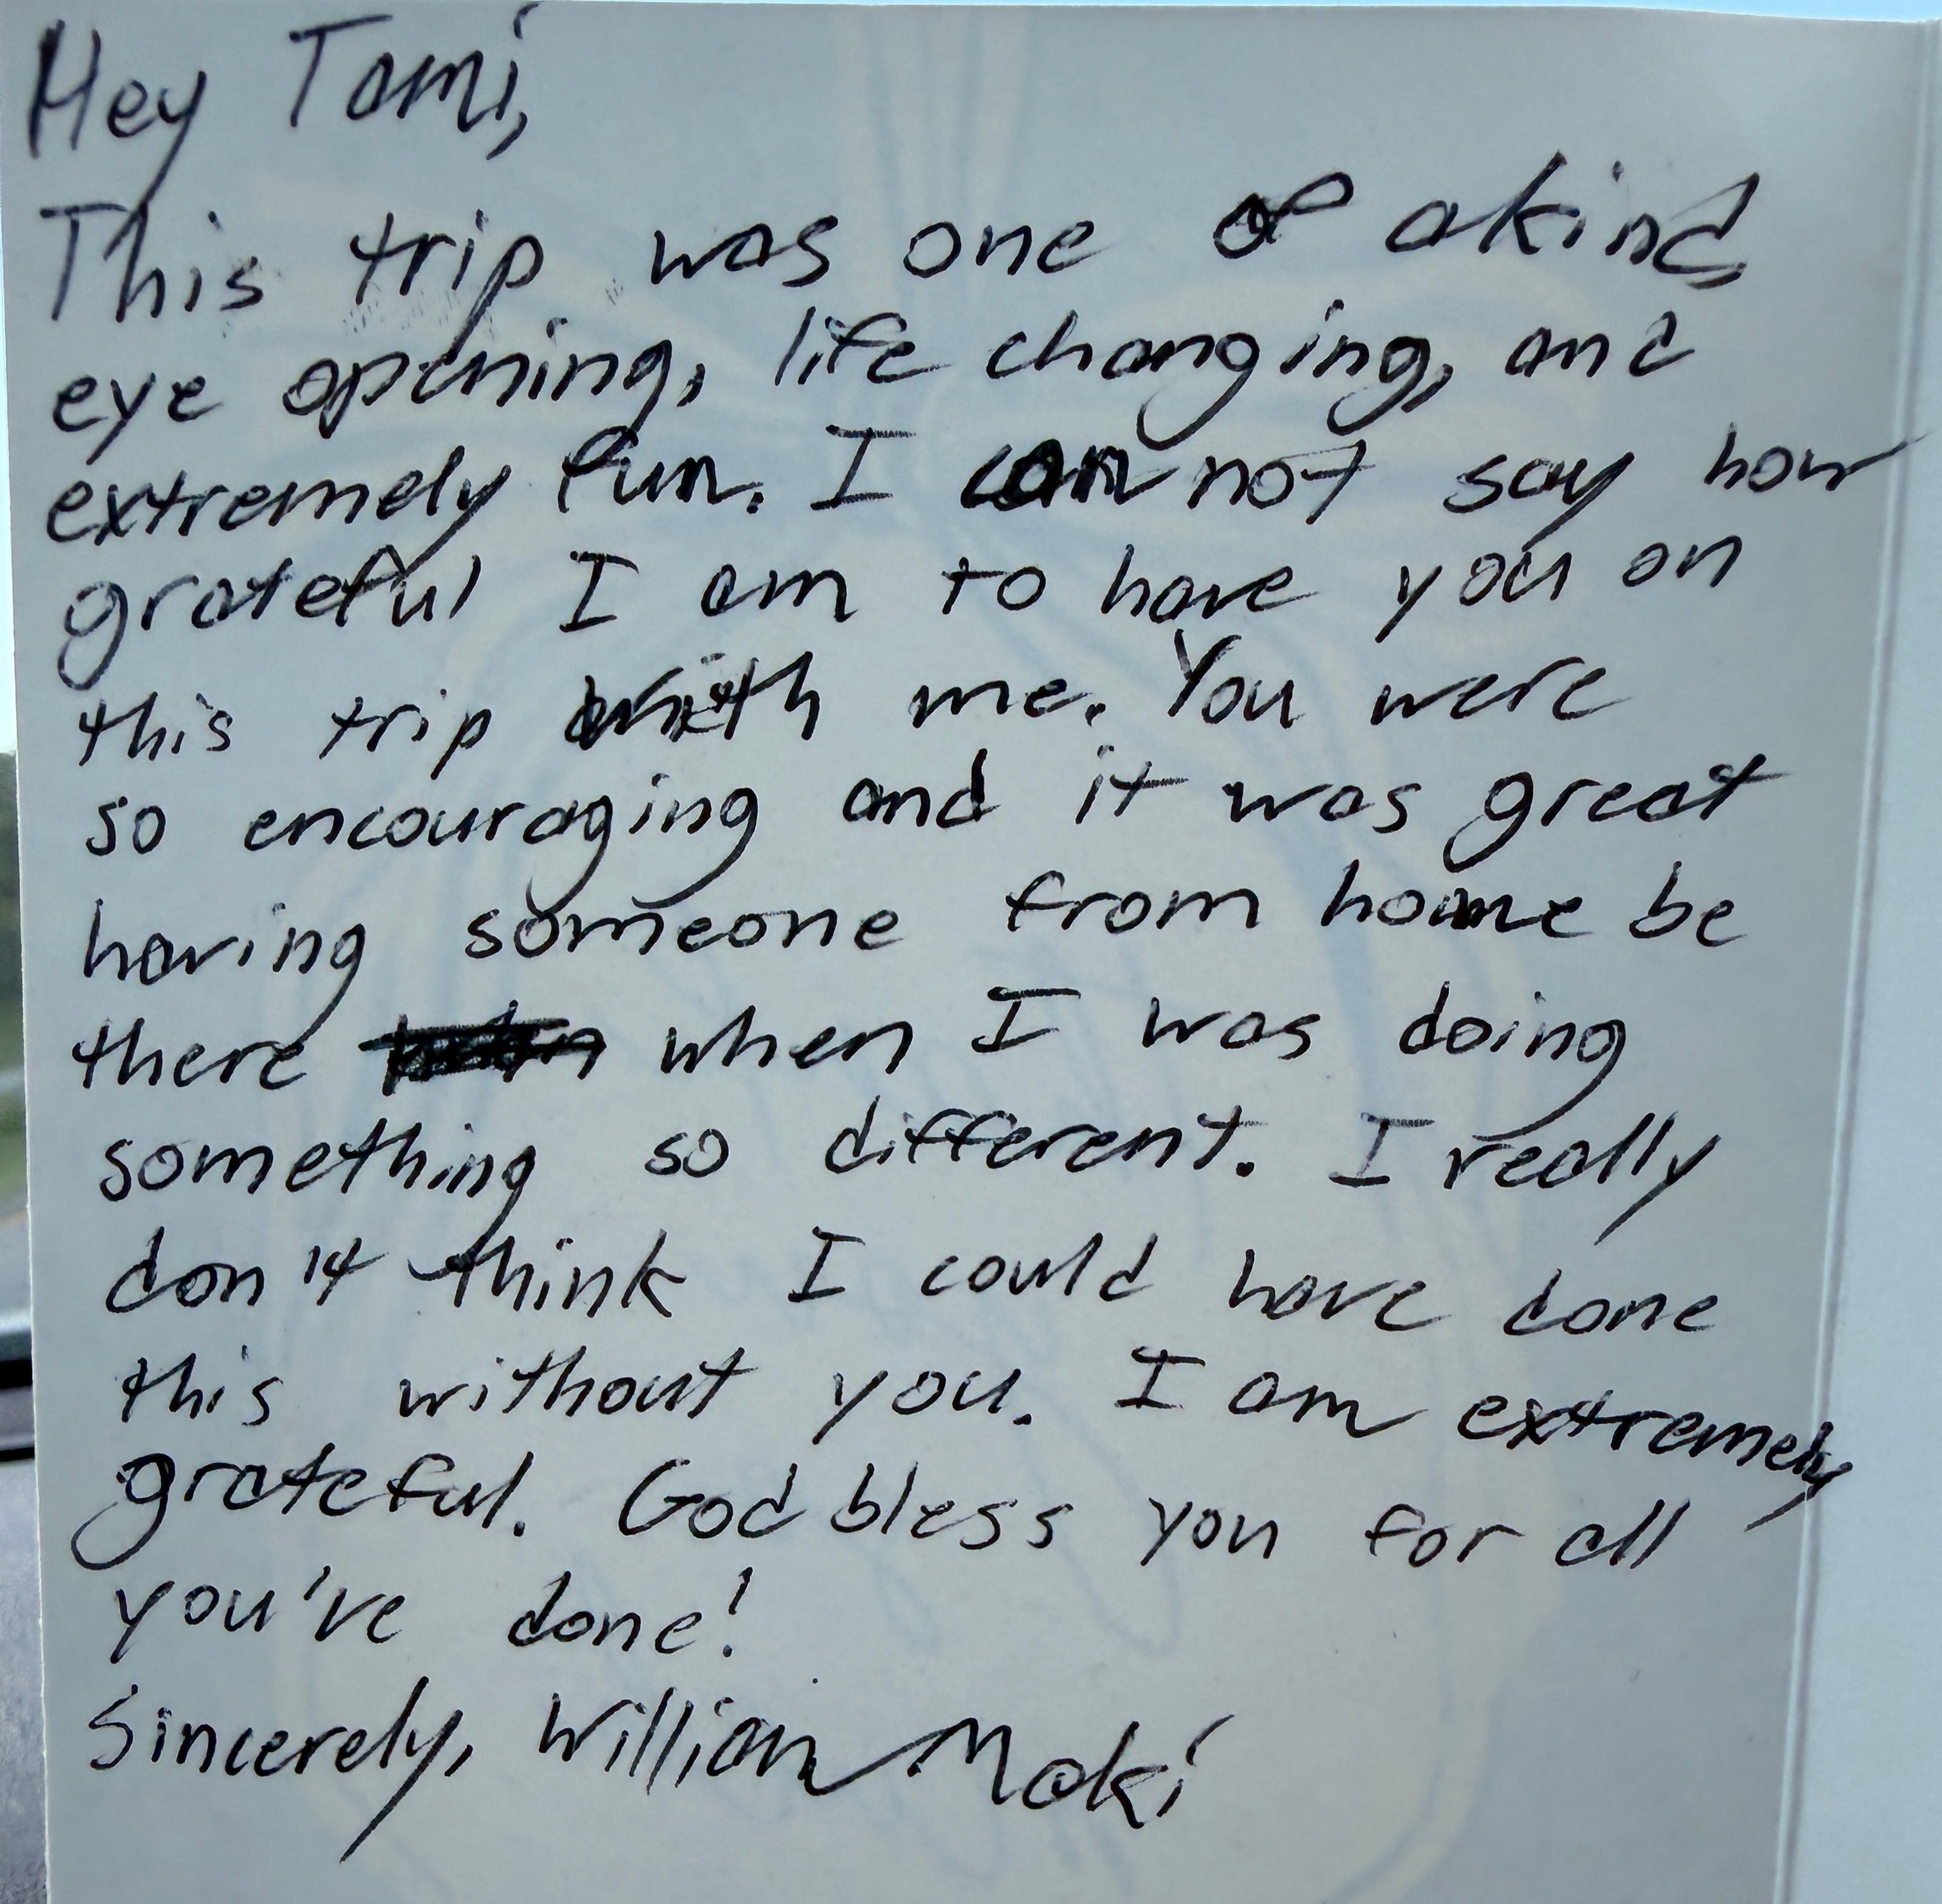 Hey Tami,
This trip was one of a kind,
eye opening, life changing, and
extremely fun. I can not say how
grateful I am to have you on
this trip with me. You were
so encouraging and it was great
having someone from home be
there when I was doing
something so different. I really
don't think I could have done
this without you. I am extremely
grateful. God bless you for all
you've done!
Sincerely, William Maki